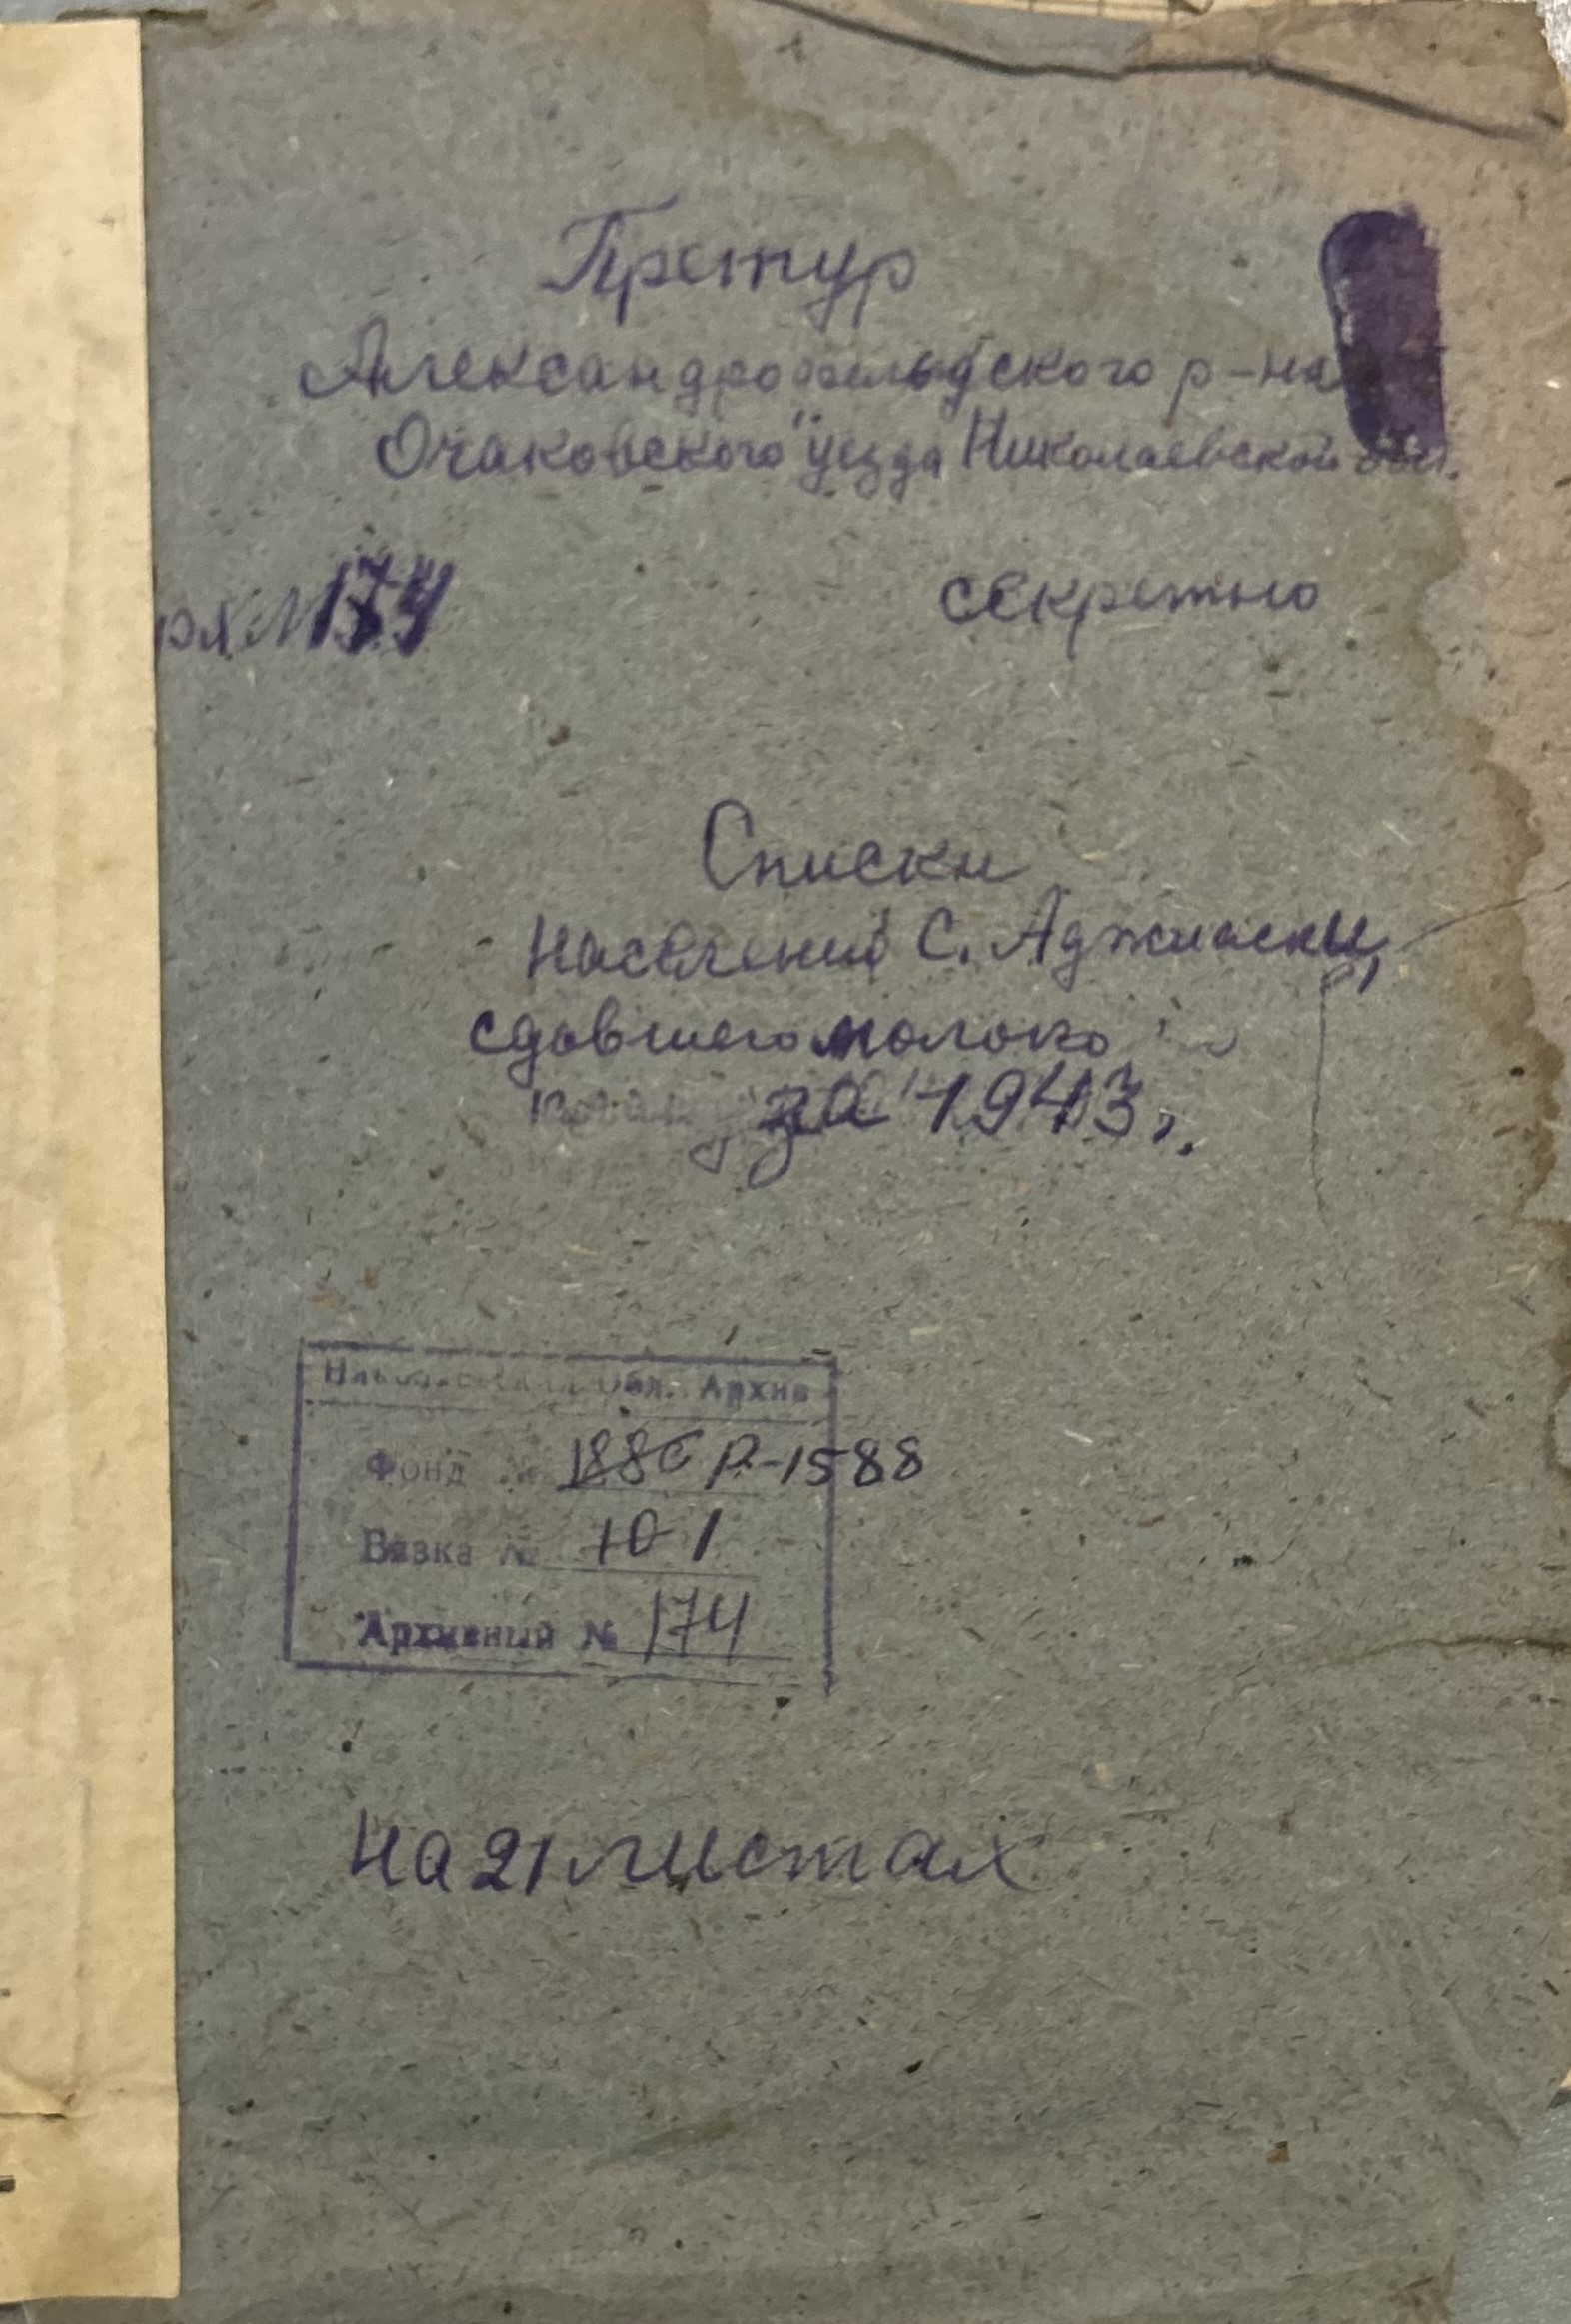 Претур
Александрофельдского р-на
Очаковского уезда Николаевской обл.
арх № 174
секретно
Списки
населения С. Аджиаски,
сдавшего молоко
за 1943 г.
Николаевский Обл. Архив
Фонд № Р-1588
Вязка № 1
Архивный № 174
на 21 листах